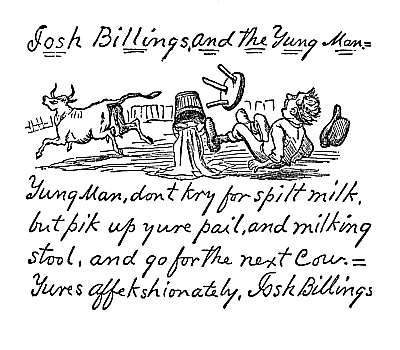 Josh Billings, and the Yung Man=
Yung Man, dont kry for spilt milk,
but pik up yure pail, and milking
stool, and go for the next Cow.=
Yures affekshionately, Josh Billings